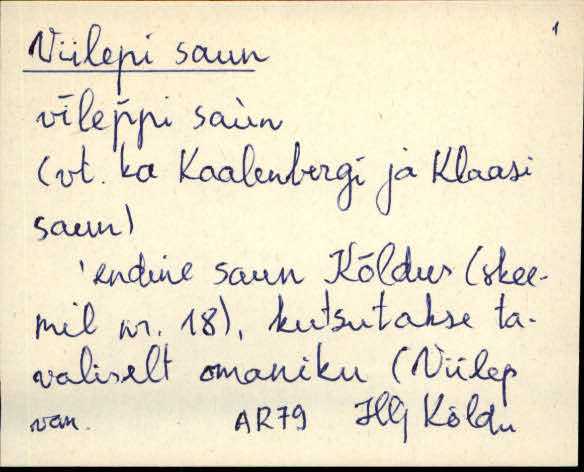 1
Viilepi saun
vīlep̆pi saùn
(vt. ka Kaalenbergi ja Klaasi
saun)
'endine saun Kõldus (skee-
mil nr. 18), kutsutakse ta-
valiselt omaniku (Viilep
van. AR79 HG Kõldu